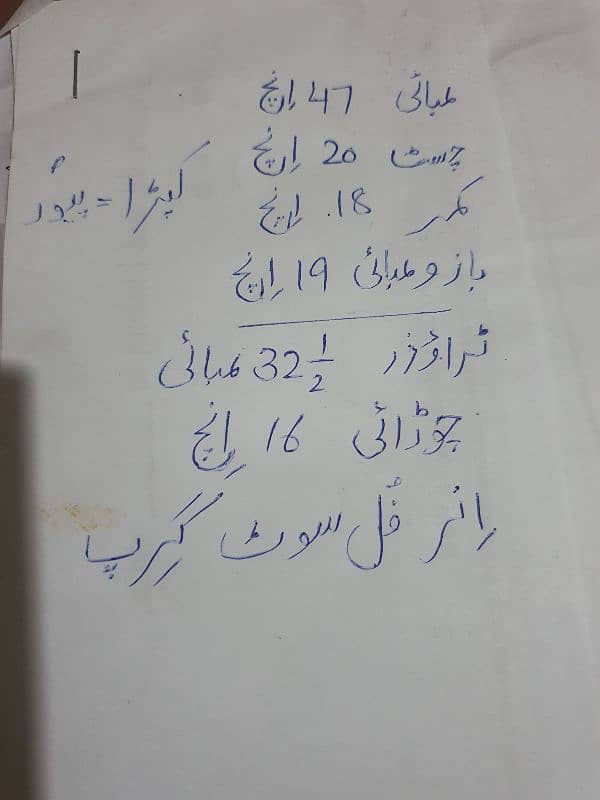 لمبائی 47 اِنچ
چسٹ 20 اِنچ
کمر 18. اِنچ
کپڑا = پیوُر
بازو لمبائی 19 اِنچ
ٹراؤزر 32 1/2 لمبائی
چوڑائی 16 اِنچ
اِنر فُل سوٹ گِرپ